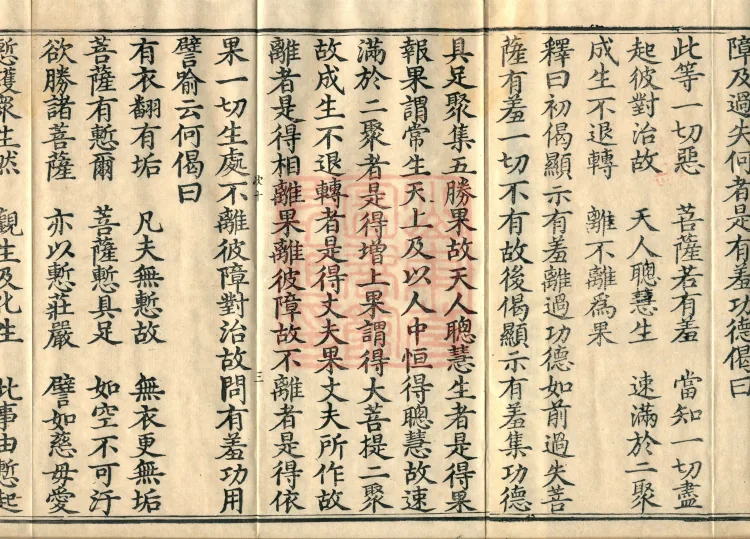 障及過失何者是有羞功德偈曰
此等一切惡 菩薩若有羞 當知一切盡
起彼對治故 天人聰慧生 速滿於二聚
成生不退轉 離不離爲果
釋曰初偈顯示有羞離過功德如前過失菩
薩有羞一切不有故後偈顯示有羞集功德
具足聚集五勝果故天人聰慧生者是得果
報果謂常生天上及以人中恒得聰慧故速
滿於二聚者是得增上果謂得大菩提二聚
故成生不退轉者是得丈夫果丈夫所作故
離者是得相離果離彼障故不離者是得依
果一切生處不離彼障對治故問有羞功用
譬喻云何偈曰
有衣翻有垢 凡夫無慙故 無衣更無垢
菩薩有慙爾 菩薩慙具足 如空不可汙
欲勝諸菩薩 亦以慙莊嚴 譬如慈母愛
慙護衆生然 觀生及化生 此事由慙起